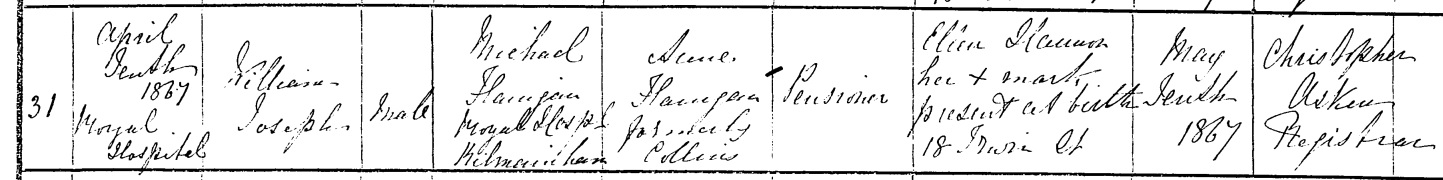 31
April
Tenth
1867
Royal
Hospital
William
Joseph
Male
Michael
Flanigan
Royal Hospl
Kilmainham
Anne
Flanigan
formerly
Collins
Pensioner
Ellen
her + mark
present at birth
18 Irwin St
May
Tenth
1867
Christopher
Askew
Registrar